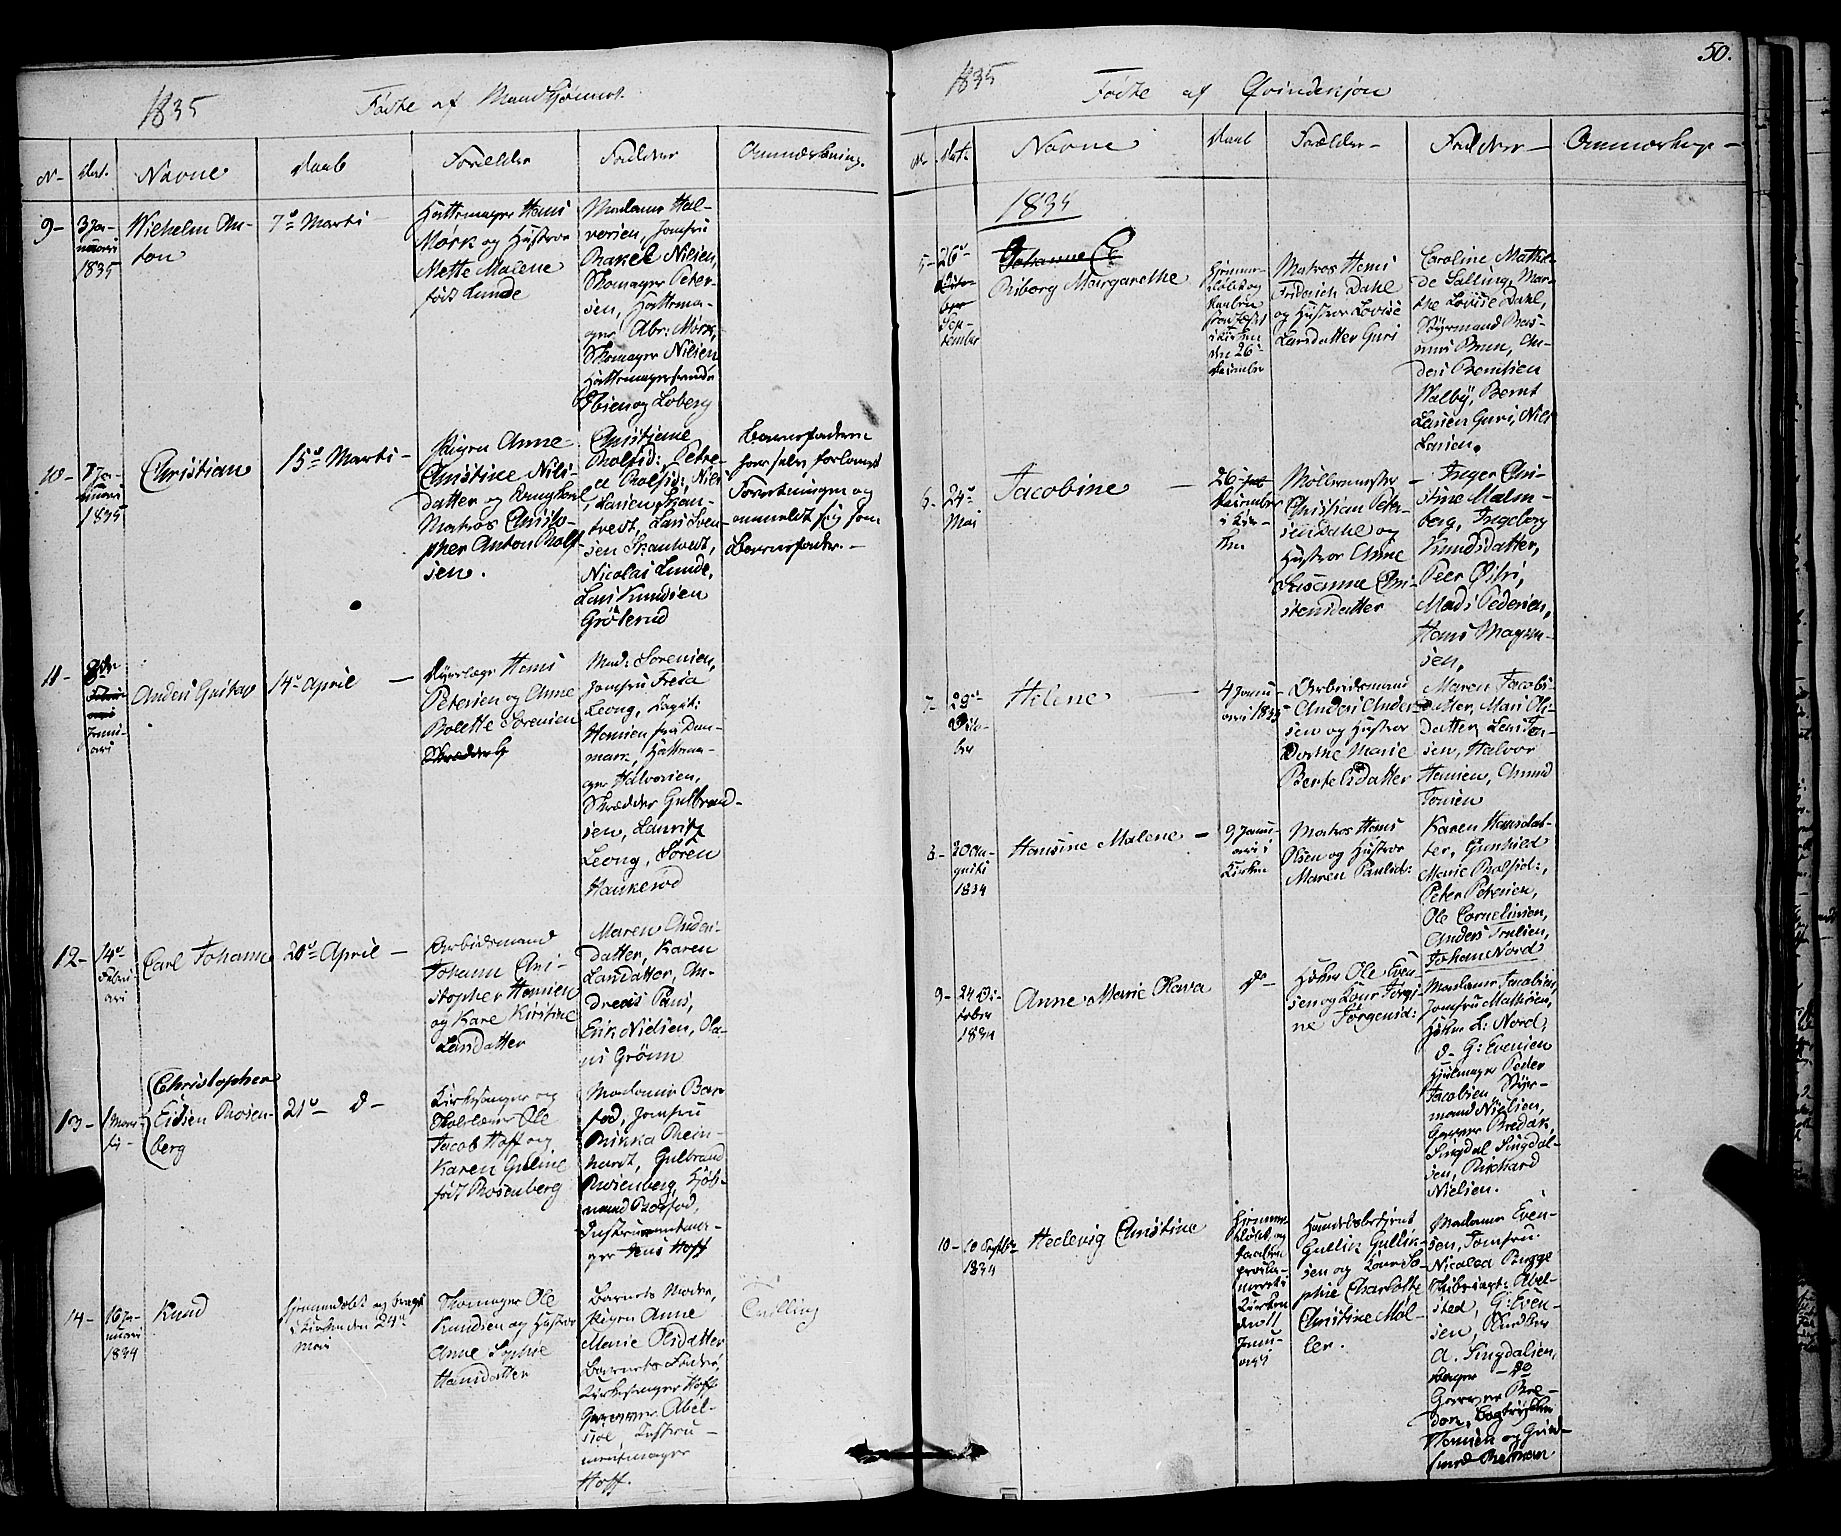 1835
Fødte af Mandkjønnet.
N-
Dat.
Navne
Daab
Forældre
Faddere
Anmærkning.
9-
3 Ja-
nuari
1835
Wilhelm An-
ton
7de Marti
Hattemager Hans
Mørk og Hustroe
Mette Malene
født Lunde
Madame Hal-
vorsen, Jomfru
Rakel Nilsen,
Skomager Peter-
sen, Hattema-
ger Abr: Mørk,
Skomager Nilsen
Hattemagersvende
Ibsen og Loberg
10-
Ja-
nuari
1835
Christian
15de Marti -
Pigen Anne
Christine Nils-
datter og Ungkarl
Matros Christo-
pher Anton Rolf-
sen.
Christiane
Rolfsd:, Petre-
a Rolfsd: Nils
Larsen Skan-
tvedt, Lars Sven-
sen Skantvedt,
Nicolai Lunde,
Lars Knudsen
Grøterud
Barnefaderen
har selv forlangt
Forretningen og
anmeldt sig som
Barnefader. -
11-
Janu-
ari
Anders Gustav
14de April -
Dyrlæge Hans
Petersen og Anne
Bolette Sørensen
Mad: Sørensen,
Jomfru Fresa
Leong, Capit:
Hansen fra Dan-
mark, Hattema-
ger Halvorsen,
Skrædder Gulbrand-
sen, Lauritz
Leong, Søren
Haukerød
12-
14de
Febru-
ari
Carl Johann
20de April -
Arbeidsmand
Johann Chri-
stopher Hansen
og Kare Kirstine
Larsdatter
Maren Anders-
datter, Karen
Larsdatter, An-
dreas Pans,
Erik Nielsen, Ola-
us Grønn
13-
1 Mar-
ti-
Christopher
Eidsen Rosen-
berg
21de d-
Kirkesanger og
Skolelærer Ole
Jacob Hoff og
Karen Guline
født Rosenberg
Madame Bær-
fod, Jomfru
Rikka Rein-
hardt, Gulbrand
Rosenberg, Kjøb-
mand
Instrumentma-
ger Jens Hoff
14-
16 Ja-
nuari
1834
Knud
Hjemmedøbt og bragt
i Kirken den 24de
Mai
Skomager Ole
Knudsen og Hustroe
Anne Sophie
Hansdatter
Barnets Moder,
Pigen Anne
Marie Olsdatter
Barnets Fader,
Kirkesanger Hoff
Garver Abel-
sted Instru-
mentmager
Hoff.
Tvilling
1835
Fødte af Qvindekjøn
50.
N-
Dat.
Navne
Daab
Forældre-
Faddere-
Anmærkning-
1834
5-
26de
Sep-
tember
Johanne C
Riborg Margarethe
Hjemme-
døbt og
Daaben
i Kirken
den 26de
December
Matros Hans
Friderich Dahl
og Hustroe Lovise
Larsdatter Guri
Caroline Mathil-
de Salling, Mar-
the Lovise Dahl,
Styrmand Ras-
mus Brun, An-
ders Berntsen
Walby, Bernt
Larsen Guri, Nils
Larsen.
6-
24de
Mai
Jacobine
26de
December
i Kir-
ken
Møllermester
Christian Peter-
sen Dahl og
Hustroe Anne
Susanne Chri-
stensdatter
Inger Chri-
stine Malm-
berg, Ingeborg
Knudsdatter,
Peer Østri,
Mads Pedersen,
Hans Magnu-
sen,
7-
29de
Octo-
ber
Helene
4 Janu-
ari 1835
Arbeidsmand
Anders Ander-
sen og Hustroe
Dorthe Marie
Bertelsdatter
Maren Jacobs-
datter, Mari Ols-
datter, Lars Jo-
sen, Halvor
Hansen, Amund
Jonsen
8-
20 Au-
gusti
1834
Hansine Malene -
9 Janu-
ari i
Kirken
Matros Hans
Olsen og Hustroe
Maren Paulsd:
Karen Hansdat-
ter, Gunhild
Marie Rolfsd:,
Peter Petersen,
Ole Corneliusen,
Anders Trulsen,
Johan Nord
9-
24 Oc-
tober
1834
Anne Marie Olava
do
Høker Ole Even-
sen og Kone Jørgi-
ne Jørgensd:
Madame Jacobsen,
Jomfru Mathisen,
Høker L: Nord,
d- G: Evensen
Hjulmager Peder
Jacobsen, Styr-
mand Nielsen,
Garver Bredak,
Singdal Singdal-
sen, Richard
Nielsen.
10-
10 Septbr
1834
Hedevig Christine
Hjemme-
døbt og
Daaben
Kirken
den 11
Janu-
ari
Handelsbetjent
Gullik Gullik-
sen og Kone So-
phie Charlotte
Christine Møl-
ler.
Madame Even-
sen, Jomfru
Nicolea Rugge
Abel-
sted, G: Even-
sen,
A. Singdalsen,
Bager - do
Garver Bre-
dan, Bogtrykker
Hansen og